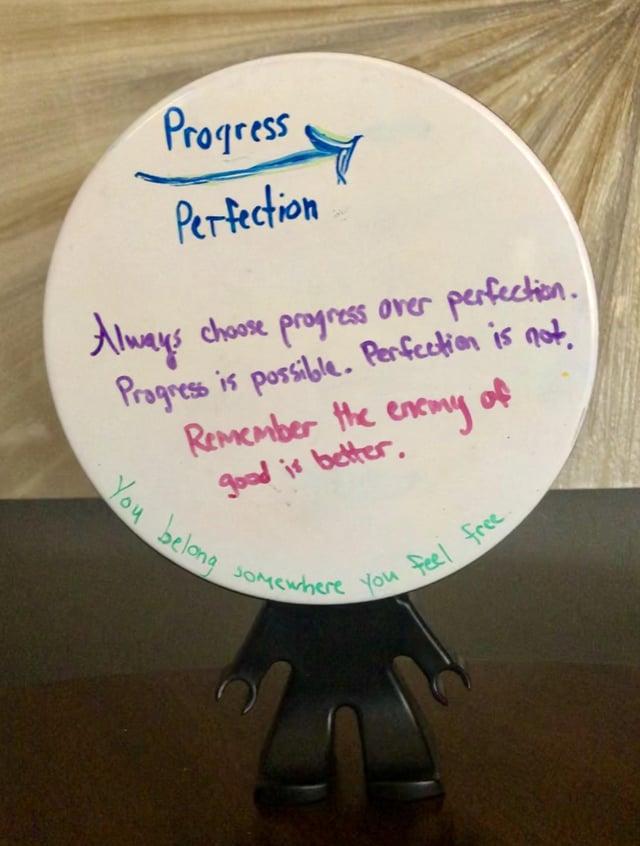 Progress
Perfection
Always choose progress over perfection.
Progress is possible. Perfection is not.
Remember the enemy of
good is better.
You belong somewhere you feel free